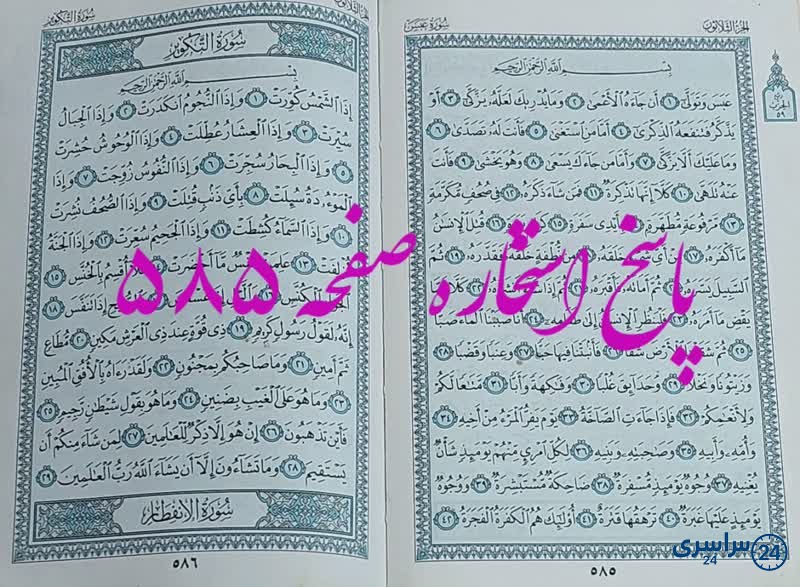 الجزء الثلاثون
سورة عبس
الحزب ٥٩
بسم الله الرحمن الرحيم
عَبَسَ وَتَوَلَّىٰ ١ أَن جَاءَهُ الْأَعْمَىٰ ٢ وَمَا يُدْرِيكَ لَعَلَّهُ يَزَّكَّىٰ ٣ أَوْ
يَذَّكَّرُ فَتَنفَعَهُ الذِّكْرَىٰ ٤ أَمَّا مَنِ اسْتَغْنَىٰ ٥ فَأَنتَ لَهُ تَصَدَّىٰ ٦
وَمَا عَلَيْكَ أَلَّا يَزَّكَّىٰ ٧ وَأَمَّا مَن جَاءَكَ يَسْعَىٰ ٨ وَهُوَ يَخْشَىٰ ٩ فَأَنتَ
عَنْهُ تَلَهَّىٰ ١٠ كَلَّا إِنَّهَا تَذْكِرَةٌ ١١ فَمَن شَاءَ ذَكَرَهُ ١٢ فِي صُحُفٍ مُّكَرَّمَةٍ
١٣ مَّرْفُوعَةٍ مُّطَهَّرَةٍ ١٤ بِأَيْدِي سَفَرَةٍ ١٥ قُتِلَ الْإِنسَانُ
مَا أَكْفَرَهُ ١٧ مِنْ أَيِّ شَيْءٍ خَلَقَهُ مِن نُّطْفَةٍ خَلَقَهُ فَقَدَّرَهُ ١٩ ثُمَّ
السَّبِيلَ يَسَّرَهُ ثُمَّ أَمَاتَهُ فَأَقْبَرَهُ ثُمَّ إِذَا شَاءَ كَلَّا لَمَّا
يَقْضِ مَا أَمَرَهُ فَلْيَنظُرِ الْإِنسَانُ إِلَىٰ طَعَامِهِ أَنَّا صَبَبْنَا الْمَاءَ صَبًّا
٢٥ ثُمَّ شَقَقْنَا الْأَرْضَ شَقًّا فَأَنبَتْنَا فِيهَا حَبًّا ٢٧ وَعِنَبًا وَقَضْبًا ٢٨
وَزَيْتُونًا وَنَخْلًا ٢٩ وَحَدَائِقَ غُلْبًا ٣٠ وَفَاكِهَةً وَأَبًّا ٣١ مَّتَاعًا لَّكُمْ
وَلِأَنْعَامِكُمْ ٣٢ فَإِذَا جَاءَتِ الصَّاخَّةُ ٣٣ يَوْمَ يَفِرُّ الْمَرْءُ مِنْ أَخِيهِ ٣٤
وَأُمِّهِ وَأَبِيهِ ٣٥ وَصَاحِبَتِهِ وَبَنِيهِ ٣٦ لِكُلِّ امْرِئٍ مِّنْهُمْ يَوْمَئِذٍ شَأْنٌ
يُغْنِيهِ ٣٧ وُجُوهٌ يَوْمَئِذٍ مُّسْفِرَةٌ ٣٨ ضَاحِكَةٌ مُّسْتَبْشِرَةٌ ٣٩ وَوُجُوهٌ
يَوْمَئِذٍ عَلَيْهَا غَبَرَةٌ ٤٠ تَرْهَقُهَا قَتَرَةٌ ٤١ أُولَٰئِكَ هُمُ الْكَفَرَةُ الْفَجَرَةُ ٤٢
٥٨٥
الجزء الثلاثون
سورة التكوير
سُورَةُ التَّكْوِيرِ
بسم الله الرحمن الرحيم
إِذَا الشَّمْسُ كُوِّرَتْ ١ وَإِذَا النُّجُومُ انكَدَرَتْ ٢ وَإِذَا الْجِبَالُ
سُيِّرَتْ ٣ وَإِذَا الْعِشَارُ عُطِّلَتْ ٤ وَإِذَا الْوُحُوشُ حُشِرَتْ
٥ وَإِذَا الْبِحَارُ سُجِّرَتْ ٦ وَإِذَا النُّفُوسُ زُوِّجَتْ ٧ وَإِذَا
الْمَوْءُودَةُ سُئِلَتْ ٨ بِأَيِّ ذَنبٍ قُتِلَتْ ٩ وَإِذَا الصُّحُفُ نُشِرَتْ
١٠ وَإِذَا السَّمَاءُ كُشِطَتْ ١١ وَإِذَا الْجَحِيمُ سُعِّرَتْ ١٢ وَإِذَا الْجَنَّةُ
أُزْلِفَتْ ١٣ عَلِمَتْ نَفْسٌ مَّا أَحْضَرَتْ فَلَا أُقْسِمُ بِالْخُنَّسِ ١٥
الْجَوَارِ الْكُنَّسِ وَاللَّيْلِ إِذَا عَسْعَسَ وَالصُّبْحِ إِذَا تَنَفَّسَ ١٨
إِنَّهُ لَقَوْلُ رَسُولٍ كَرِيمٍ ١٩ ذِي قُوَّةٍ عِندَ ذِي الْعَرْشِ مَكِينٍ ٢٠ مُّطَاعٍ
ثَمَّ أَمِينٍ ٢١ وَمَا صَاحِبُكُم بِمَجْنُونٍ ٢٢ وَلَقَدْ رَآهُ بِالْأُفُقِ الْمُبِينِ
٢٣ وَمَا هُوَ عَلَى الْغَيْبِ بِضَنِينٍ ٢٤ وَمَا هُوَ بِقَوْلِ شَيْطَانٍ رَّجِيمٍ ٢٥
فَأَيْنَ تَذْهَبُونَ ٢٦ إِنْ هُوَ إِلَّا ذِكْرٌ لِّلْعَالَمِينَ ٢٧ لِمَن شَاءَ مِنكُمْ أَن
يَسْتَقِيمَ ٢٨ وَمَا تَشَاءُونَ إِلَّا أَن يَشَاءَ اللَّهُ رَبُّ الْعَالَمِينَ ٢٩
سُورَةُ الِانفِطَارِ
٥٨٦
پاسخ استخاره صفحه ۵۸۵
سراسری 24
24